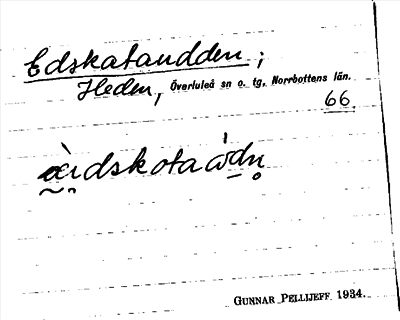 Edskataudden ;
Heden, Överluleå sn o. tg, Norrbottens län.
66.
æ̀ɩdskotaȯ̀dn̥
GUNNAR PELLIJEFF 1934.